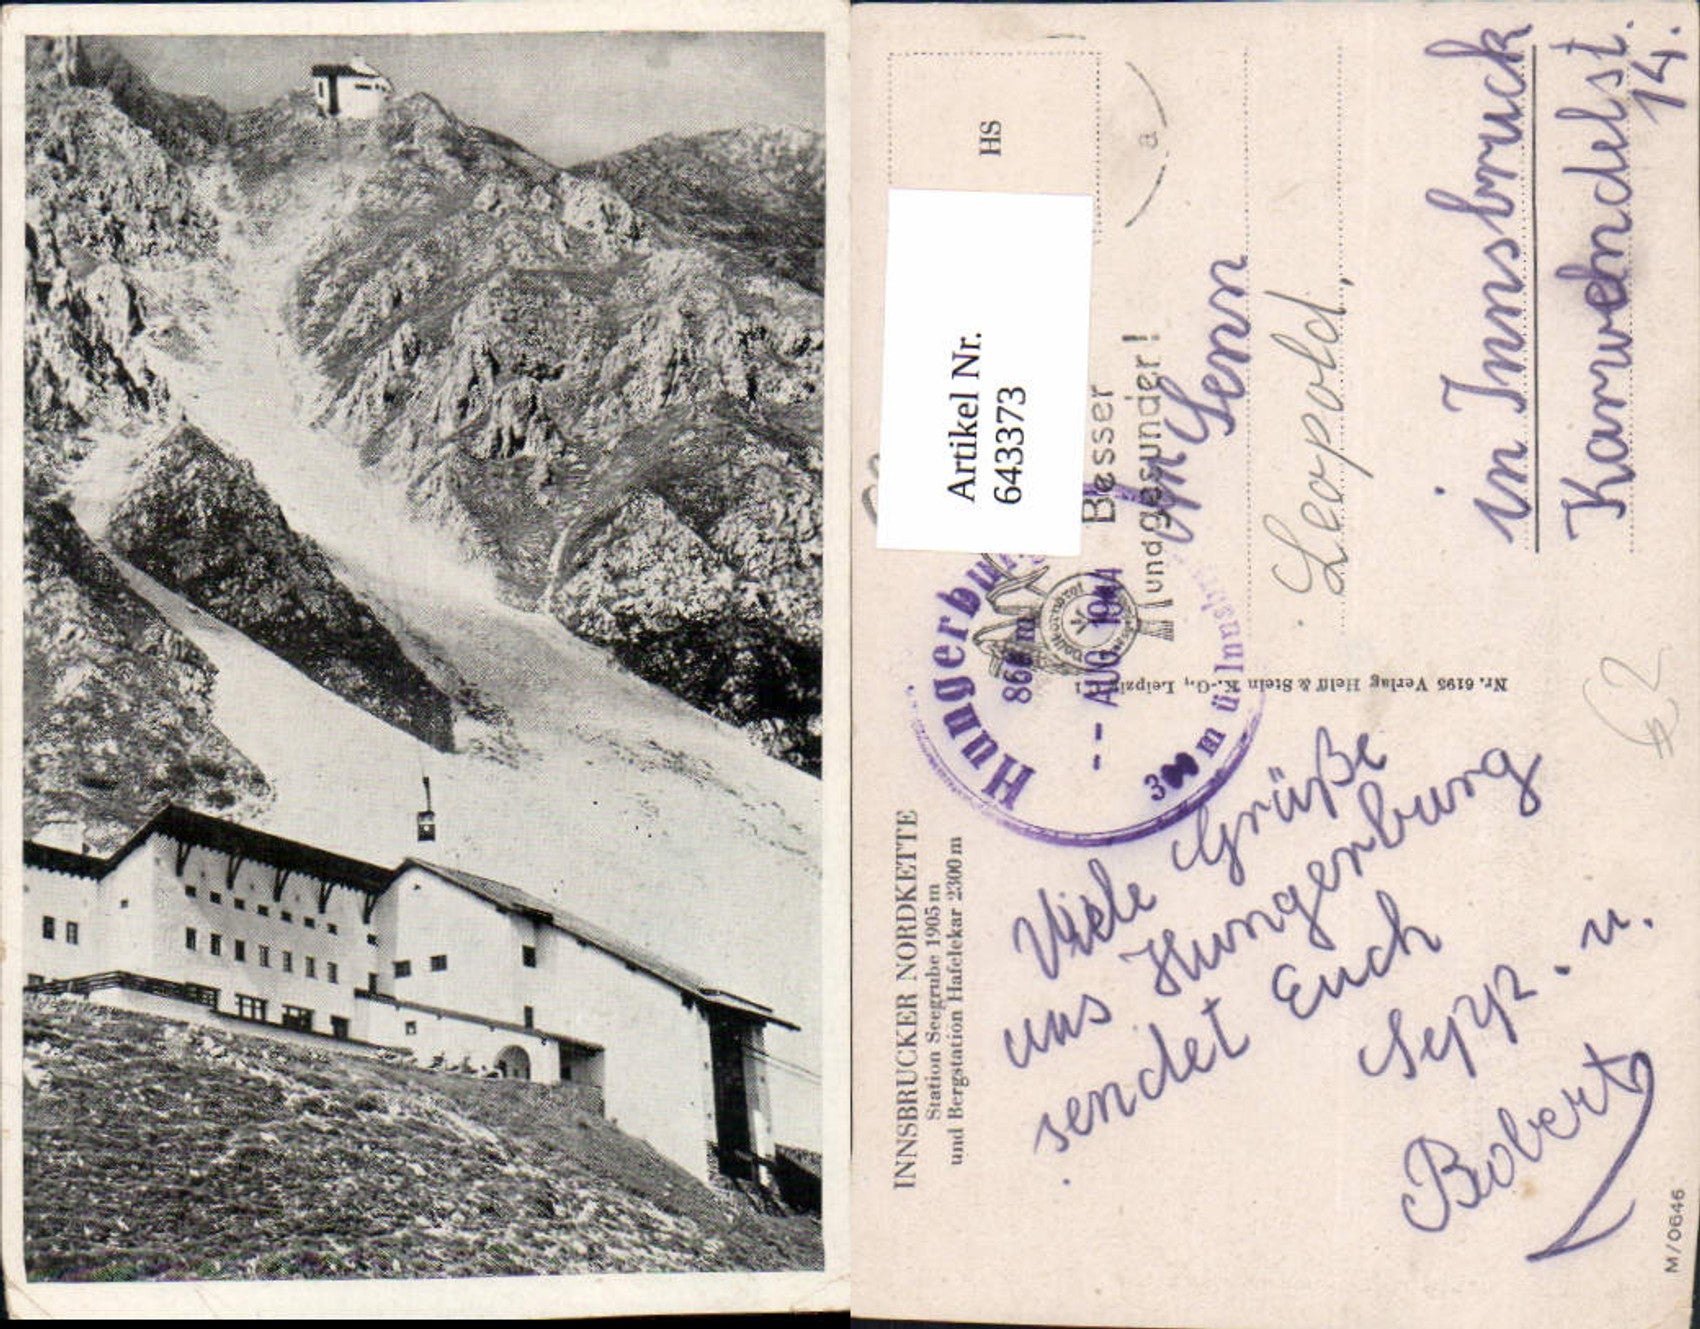 INNSBRUCKER NORDKETTE
Station Seegrube 1905 m
und Bergstation Hafelekar 2300 m
Viele Grüße
aus Hungerburg
sendet Euch
Sepp. u.
Robert
M/0646
Nr. 6195 Verlag Helff & Stein K.-G., Leipzig
Hungerburg
- - AUG. 1944
300 m ü. Innsbr
Besser
und gesunder!
Artikel Nr.
643373
HS
a
An Senn
Leopold,
in Innsbruck
Karwendelst.
14.